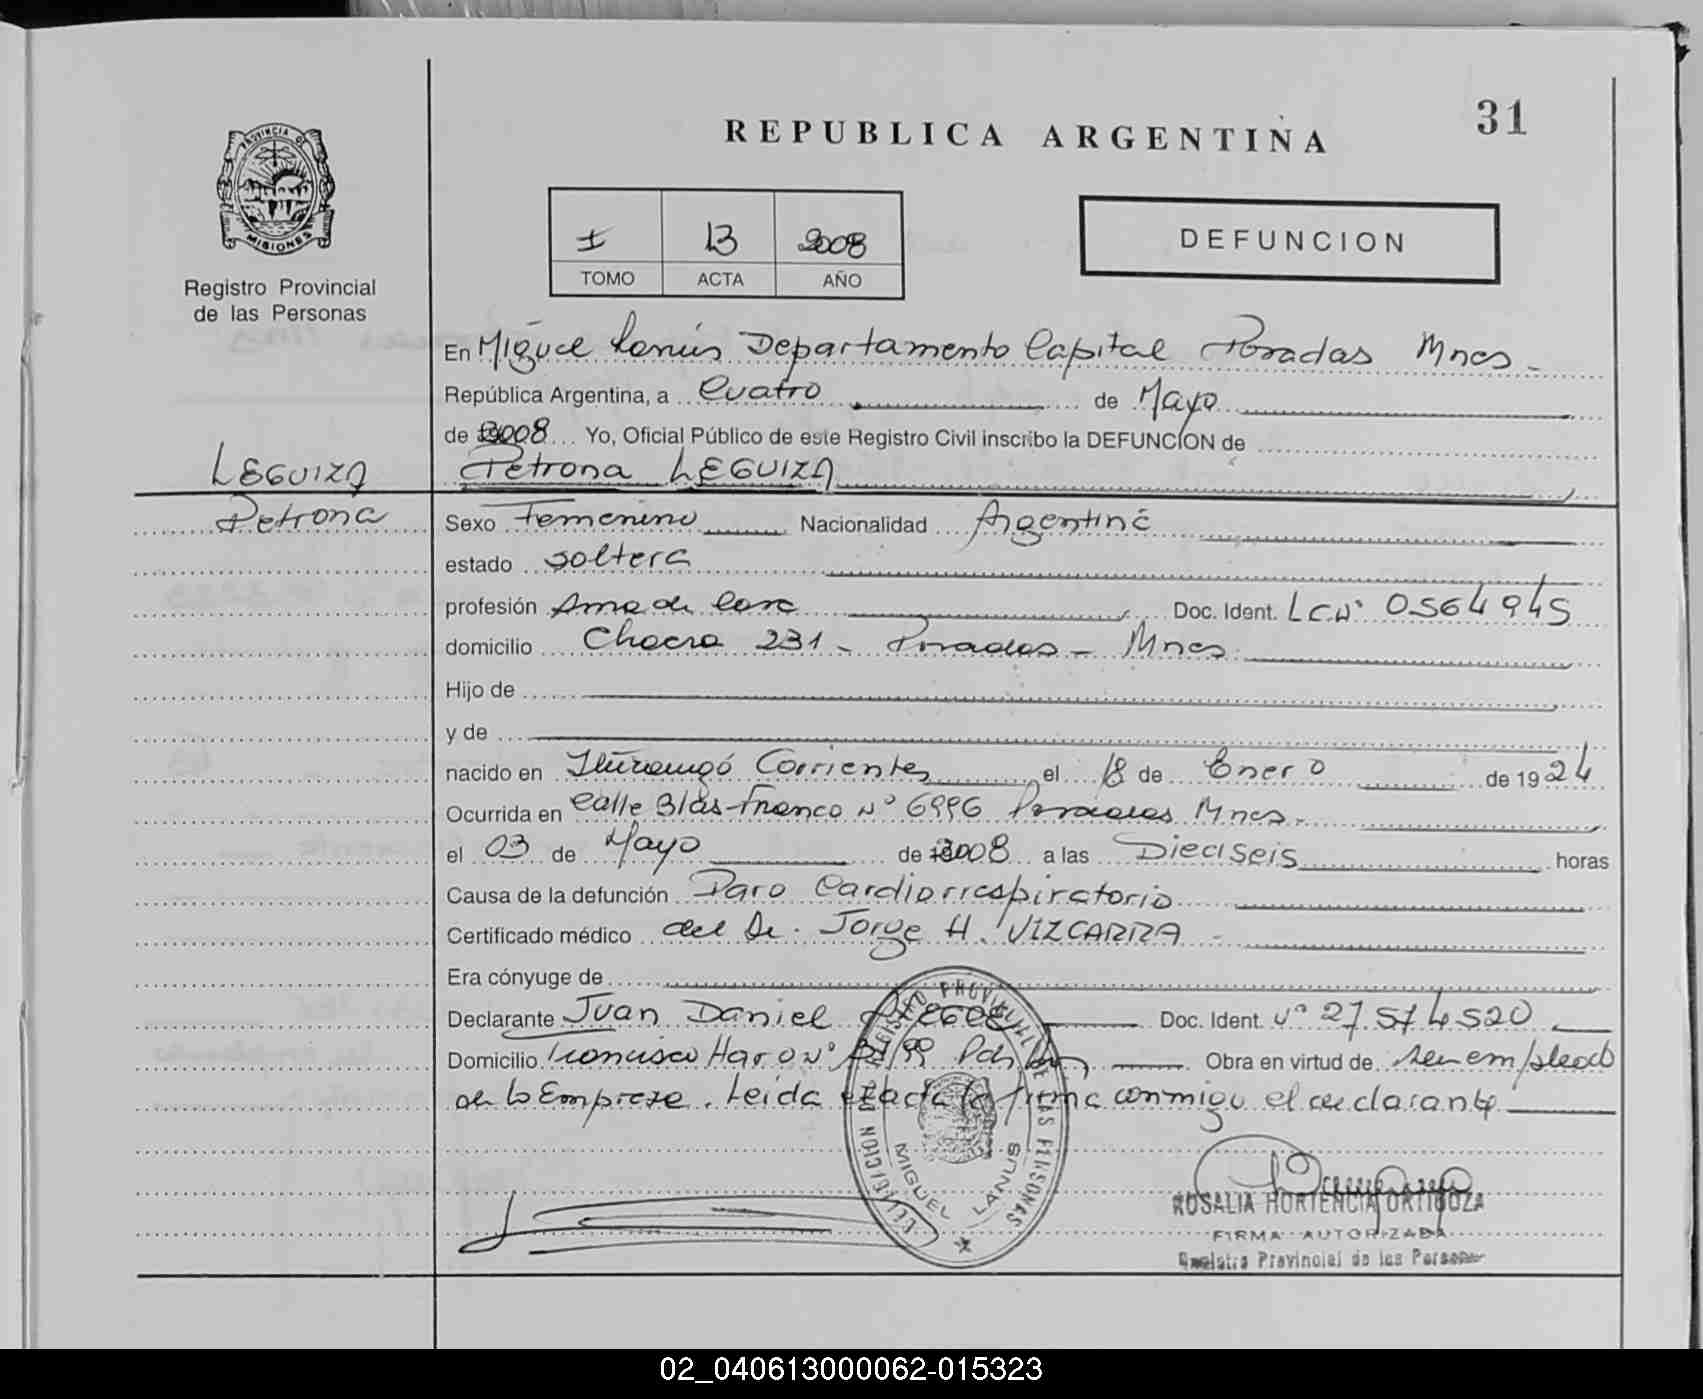 31
REPUBLICA ARGENTINA
PROVINCIA DE
MISIONES
Registro Provincial
de las Personas
I 13 2008
TOMO ACTA AÑO
DEFUNCION
En Miguel Lanús Departamento Capital Posadas Mnes
República Argentina, a Cuatro de Mayo
de 2008 Yo, Oficial Público de este Registro Civil inscribo la DEFUNCION de
LEGUIZA Petrona LEGUIZA
Petrona
Sexo Femenino Nacionalidad Argentina
estado soltera
profesión Ama de Casa Doc. Ident. LCNº 0564945
domicilio Chacra 231 - Posadas - Mnes
Hijo de
y de
nacido en Corrientes el 18 de Enero de 1924
Ocurrida en Calle Blas Franco Nº 6996 Posadas Mnes.
el 03 de Mayo de 2008 a las Dieciseis horas
Causa de la defunción Paro Cardiorrespiratorio
Certificado médico del Dr. Jorge H. VIZCARRA
Era cónyuge de
Declarante Juan Daniel Doc. Ident. Nº 27.574520
Domicilio Francisco Haro Nº Obra en virtud de ser empleado
de la Empresa. Leida el acta la firma conmigo el declarante
REGISTRO PROVINCIAL DE LAS PERSONAS
MIGUEL LANUS
ROSALIA HORTENCIA ORTIGOZA
FIRMA AUTORIZADA
Registro Provincial de las Personas
02_040613000062-015323